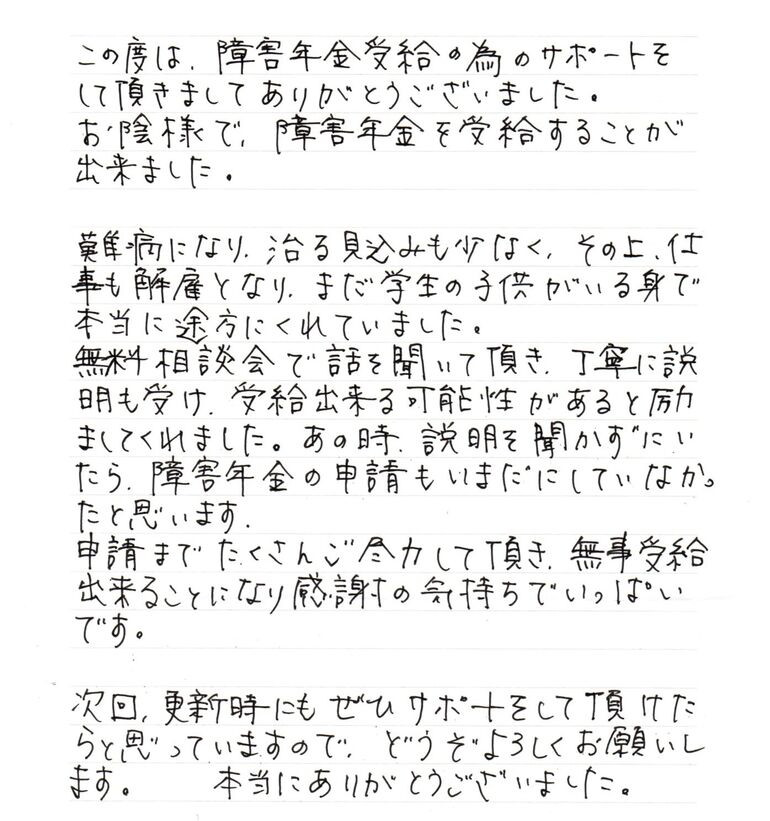 この度は、障害年金受給の為のサポートを
して頂きましてありがとうございました。
お陰様で、障害年金を受給することが
出来ました。
難病になり、治る見込みも少なく、その上、仕
事も解雇となり、まだ学生の子供がいる身で
本当に途方にくれていました。
無料相談会で話を聞いて頂き、丁寧に説
明も受け、受給出来る可能性があると励
ましてくれました。あの時、説明を聞かずにい
たら、障害年金の申請もいまだにしていなかっ
たと思います。
申請までたくさんご尽力して頂き、無事受給
出来ることになり感謝の気持ちでいっぱい
です。
次回、更新時にもぜひサポートをして頂けた
らと思っていますので、どうぞよろしくお願いし
ます。　本当にありがとうございました。